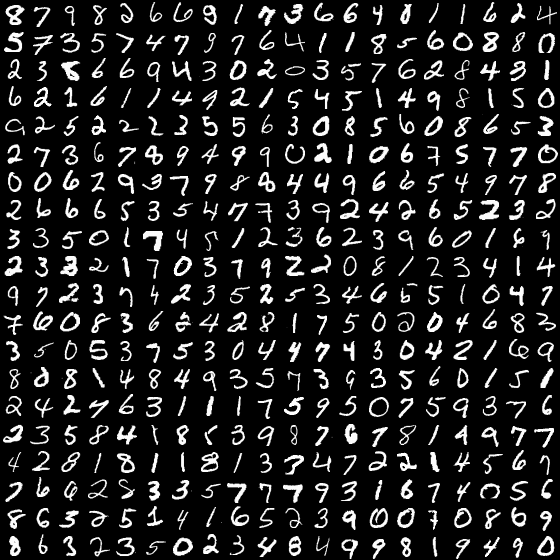 8 7 9 8 2 6 6 9 1 7 3 6 6 4 0 1 1 6 2 4
5 7 3 5 7 4 7 9 7 6 4 1 1 8 5 6 0 8 8 0
2 3 8 6 6 9 4 3 0 2 0 3 5 7 6 2 8 4 3 1
6 2 1 6 1 1 4 9 2 1 5 4 5 1 4 9 8 1 5 0
9 2 5 2 2 2 3 5 5 6 3 0 8 5 6 0 8 6 5 3
2 7 3 6 7 8 9 4 9 9 0 2 1 0 6 7 5 7 7 0
0 0 6 2 9 3 7 9 8 8 4 4 9 6 6 5 4 9 7 8
2 6 6 6 5 3 5 4 7 7 3 9 2 4 2 6 5 2 3 2
3 3 5 0 1 7 4 5 1 2 3 6 2 3 9 6 0 1 6 9
2 3 3 2 1 7 0 3 7 9 2 2 0 8 1 2 3 4 1 4
9 7 2 3 7 4 2 3 5 2 5 3 4 6 5 5 1 0 4 7
7 6 0 8 3 6 2 4 2 8 1 7 5 0 2 0 4 6 8 2
3 5 0 5 3 7 5 3 0 4 4 7 4 3 0 4 2 1 6 9
8 0 8 1 4 8 4 9 3 5 7 3 9 3 5 6 0 1 5 1
2 4 2 7 6 3 1 1 1 7 5 9 5 0 7 5 9 3 7 6
2 3 5 8 4 1 8 5 3 9 8 7 6 7 8 1 4 9 7 7
4 2 8 1 8 1 1 8 1 3 3 4 7 2 2 1 4 5 6 7
7 6 6 2 8 3 3 5 7 7 7 9 3 1 6 7 4 0 5 6
8 6 3 2 5 1 4 1 6 5 2 3 9 0 0 7 0 8 6 9
8 6 3 2 3 5 0 2 3 4 8 4 9 9 8 1 9 4 0 0